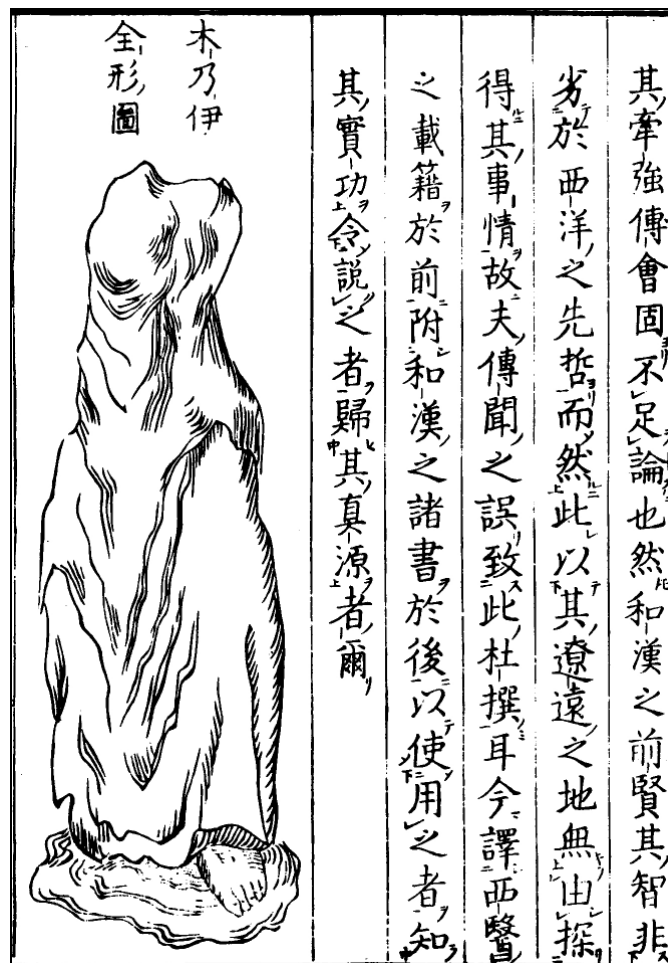 其牽強傳會固不足論也然和漢之前賢其智非
劣於西洋之先哲而然此以其遼遠之地無由探
得其事情故夫傳聞之誤致此杜撰耳今譯西醫
之載籍於前附和漢之諸書於後以使用之者知
其實功令說之者歸其真源者爾
木乃伊
全形圖